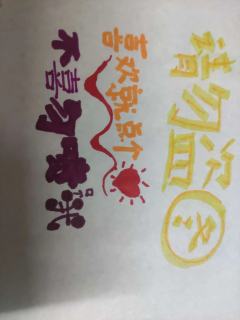 请勿盗图
喜欢就点个
不喜勿喷